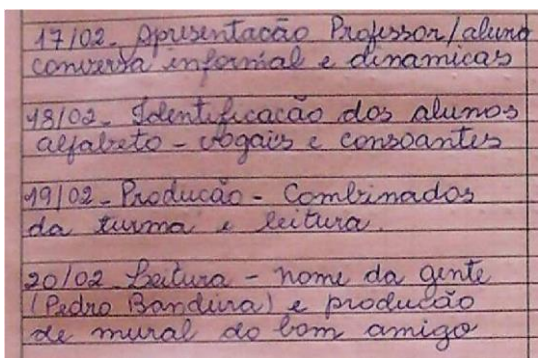 17/02- Apresentacão Professor/aluno
conversa informal e dinamicas
18/02- Identificacão dos alunos
alfabeto - vogais e consoantes
19/02- Producão - Combinados
da turma e leitura.
20/02 Leitura - nome da gente
(Pedro Bandeira) e producão
de mural do bom amigo